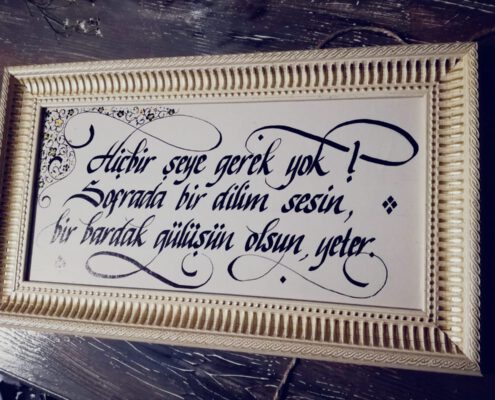 Hiçbir şeye gerek yok !
Sofrada bir dilim sesin,
bir bardak gülüşün olsun, yeter.